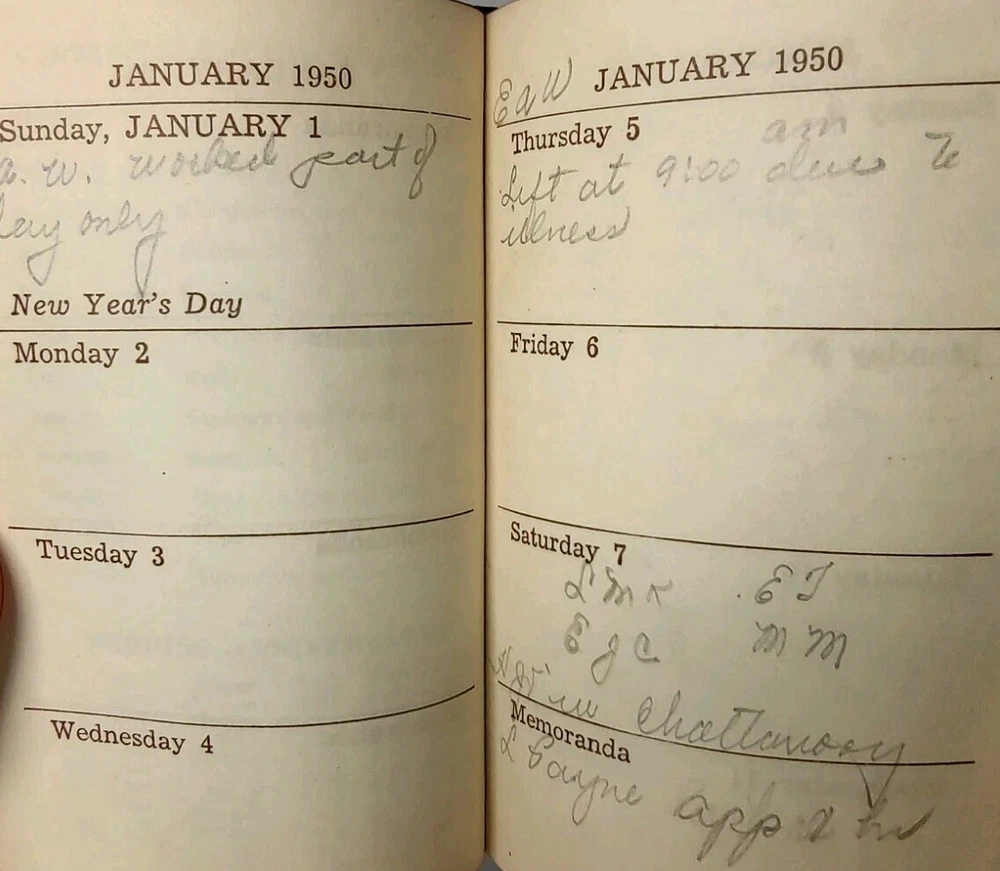 JANUARY 1950
Sunday, JANUARY 1
a. w. worked part of
day only
New Year's Day
Monday 2
Tuesday 3
Wednesday 4
E a W JANUARY 1950
Thursday 5
am
Left at 9:00 due to
illness
Friday 6
Saturday 7
L M K E T
E J C M M
in Chattanoogy
Memoranda
L Payne app 2 hr